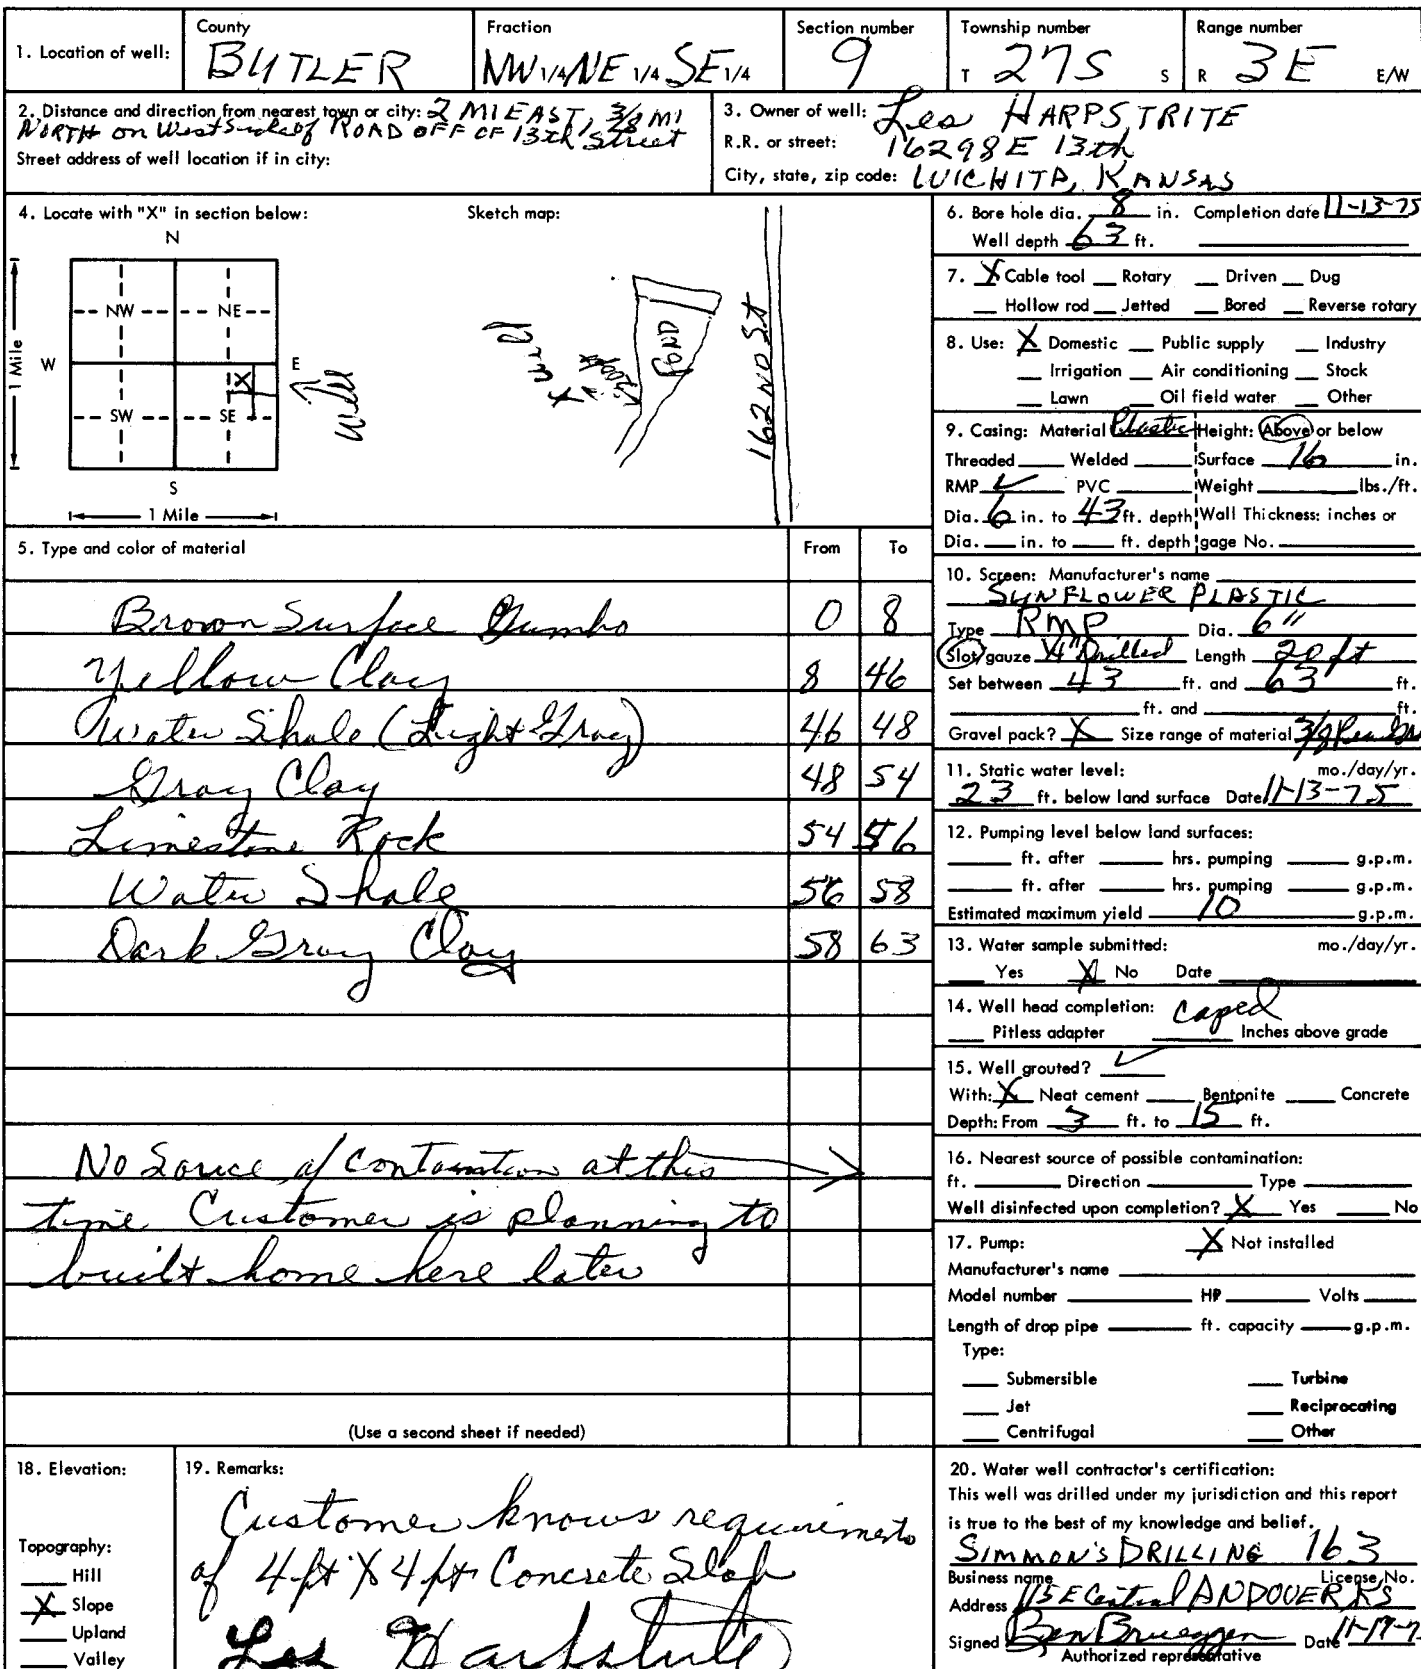 1. Location of well: County BUTLER Fraction NW 1/4 NE 1/4 SE 1/4 Section number 9 Township number T 27S S Range number R 3E E/W
2. Distance and direction from nearest town or city: 2 MI EAST, 3/8 MI
NORTH on West Side of ROAD OFF OF 13th Street
Street address of well location if in city:
3. Owner of well: Les HARPSTRITE
R.R. or street: 16298 E 13th
City, state, zip code: WICHITA, KANSAS
4. Locate with "X" in section below:
N
NW NE
W E
X
SW SE
S
1 Mile
1 Mile
Well
Sketch map:
162ND ST
5. Type and color of material From To
Brown Surface Gumbo 0 8
Yellow Clay 8 46
Water Shale (Light Gray) 46 48
Gray Clay 48 54
Limestone Rock 54 56
Water Shale 56 58
Dark Gray Clay 58 63
No Source of at this
time Customer is planning to
built home here later
(Use a second sheet if needed)
6. Bore hole dia. 8 in. Completion date 11-13-75
Well depth 63 ft.
7. X Cable tool Rotary Driven Dug
Hollow rod Jetted Bored Reverse rotary
8. Use: X Domestic Public supply Industry
Irrigation Air conditioning Stock
Lawn Oil field water Other
9. Casing: Material Plastic Height: Above or below
Threaded Welded Surface 16 in.
RMP ✓ PVC Weight lbs./ft.
Dia. 6 in. to 43 ft. depth Wall Thickness: inches or
Dia. in. to ft. depth gage No.
10. Screen: Manufacturer's name
SUNFLOWER PLASTIC
Type RMP Dia. 6"
Slot/gauze 1/4" Drilled Length 20 ft
Set between 43 ft. and 63 ft.
ft. and ft.
Gravel pack? X Size range of material 3/8 Pea
11. Static water level: mo./day/yr.
23 ft. below land surface Date 11-13-75
12. Pumping level below land surfaces:
ft. after hrs. pumping g.p.m.
ft. after hrs. pumping g.p.m.
Estimated maximum yield 10 g.p.m.
13. Water sample submitted: mo./day/yr.
Yes X No Date
14. Well head completion: caped
Pitless adapter Inches above grade
15. Well grouted? ✓
With: X Neat cement Bentonite Concrete
Depth: From 3 ft. to 15 ft.
16. Nearest source of possible contamination:
ft. Direction Type
Well disinfected upon completion? X Yes No
17. Pump: X Not installed
Manufacturer's name
Model number HP Volts
Length of drop pipe ft. capacity g.p.m.
Type:
Submersible Turbine
Jet Reciprocating
Centrifugal Other
18. Elevation:
Topography:
Hill
X Slope
Upland
Valley
19. Remarks:
Customer knows requirements
of 4 ft X 4 ft Concrete Slab
Les Harpstrite
20. Water well contractor's certification:
This well was drilled under my jurisdiction and this report
is true to the best of my knowledge and belief.
SIMMON'S DRILLING 163
Business name License No.
Address 115 E Central ANDOVER KS
Signed Ben Brueggen Date 11-17-7
Authorized representative